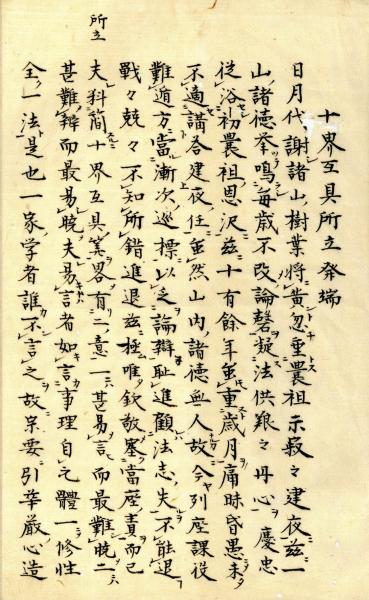 十界互具所立発端
日月代謝諸山樹葉將黄忽重農祖示寂之建夜茲一
山諸徳挙鳴毎歳不改論磬擬法供艱之丹心慶忠
従浴初農祖恩沢茲十有餘年虽重歳月庸昧昏愚未
不適講各建夜任虽然山内諸徳無人故今列座課役
難遁方當漸次巡標以乏論辯恥進顧法志失不能退
戦々兢々不知所錯進退茲極唯欽敬塞當座責而已
夫科簡十界互具笑畧有二意一甚易言而最難暁二
甚難辯而最易暁夫易言者如言事理自己體一修性
全一法是也一家学者誰不言之故宗要引華厳心造
所立